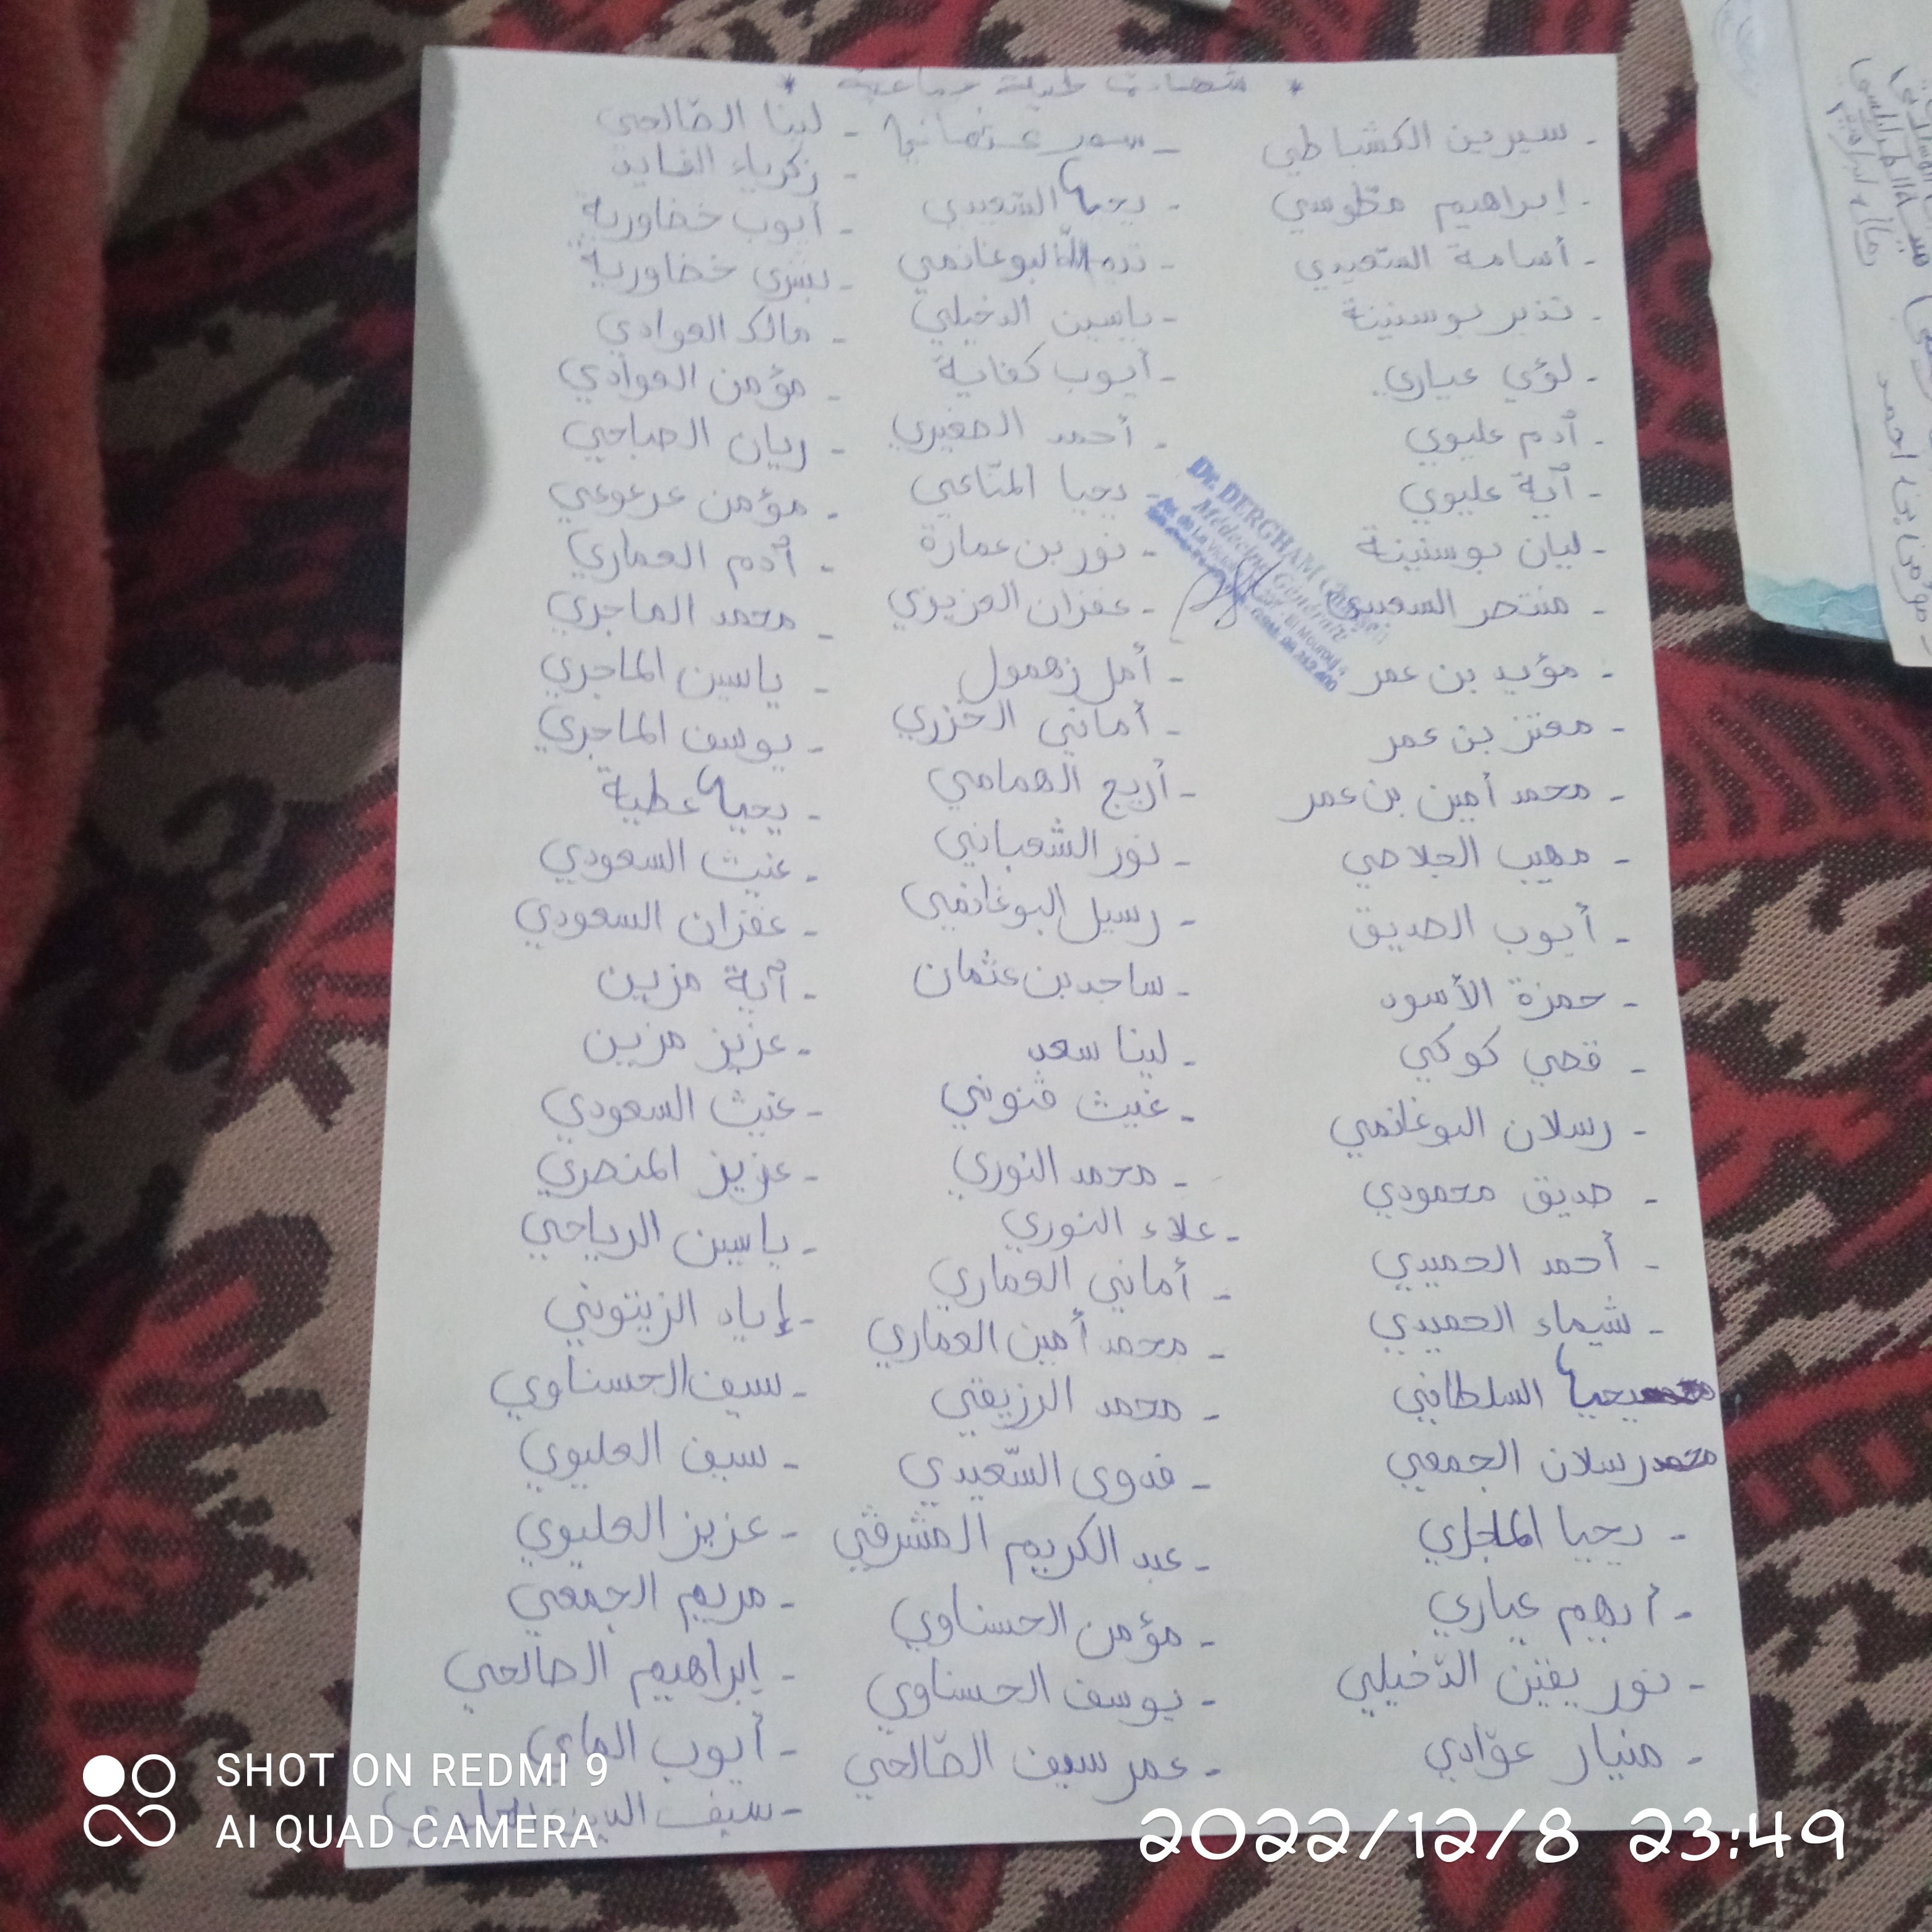 * شهادات طبية جماعية *
- سيرين الكشباطي
- إبراهيم مطوسي
- أسامة السّعيدي
- نذير بوسنينة
- لؤي عياري
- آدم عليوي
- آية عليوي
- ليان بوسنينة
- منتصر السعيدي
- مؤيد بن عمر
- معتز بن عمر
- محمد أمين بن عمر
- مهيب الجلاصي
- أيوب الصديق
- حمزة الأسود
- قصي كوكي
- رسلان البوغانمي
- صديق محمودي
- أحمد الحميدي
- شيماء الحميدي
يحيا السلطاني
رسلان الجمعي
- يحيا الماجري
- أيهم عياري
- نور يقين الدّخيلي
- منيار عوّادي
- سور عثماني
- يحيا السّعيدي
- البوغانمي
- ياسين الدخيلي
- أيوب كفاية
- أحمد الصغيري
- يحيا المنّاعي
- نور بن عمارة
- غفران العزيزي
- أمل زهمول
- أماني الخزري
- أريج الهمامي
- نور الشعباني
- رسيل البوغانمي
- ساجد بن عثمان
- لينا سعد
- غيث فنوني
- محمد النوري
- علاء النوري
- أماني العماري
- محمد أمين العماري
- محمد الرزيقي
- فدوى السّعيدي
- عبد الكريم المشرقي
- مؤمن الحسناوي
- يوسف الحسناوي
- عمر سيف الصّالحي
- لينا الصّالحي
- زكرياء القايد
- أيوب خضاورية
- بشرى خضاورية
- مالك العوادي
- مؤمن العوادي
- ريان الصباحي
- مؤمن عرعوعي
- آدم العماري
- محمد الماجري
- ياسين الماجري
- يوسف الماجري
- يحيا عطية
- غيث السعودي
- غفران السعودي
- آية مزين
- عزيز مزين
- غيث السعودي
- عزيز المنصري
- ياسين الرياحي
- إياد الزيتوني
- سيف الحسناوي
- سيف العليوي
- عزيز العليوي
- مريم الجمعي
- إبراهيم الصالحي
- أيوب الماي
- سيف الدين
Dr. DERGHAM
Médecine Générale
مؤمن بن احمد
SHOT ON REDMI 9
AI QUAD CAMERA
2022/12/8 23:49